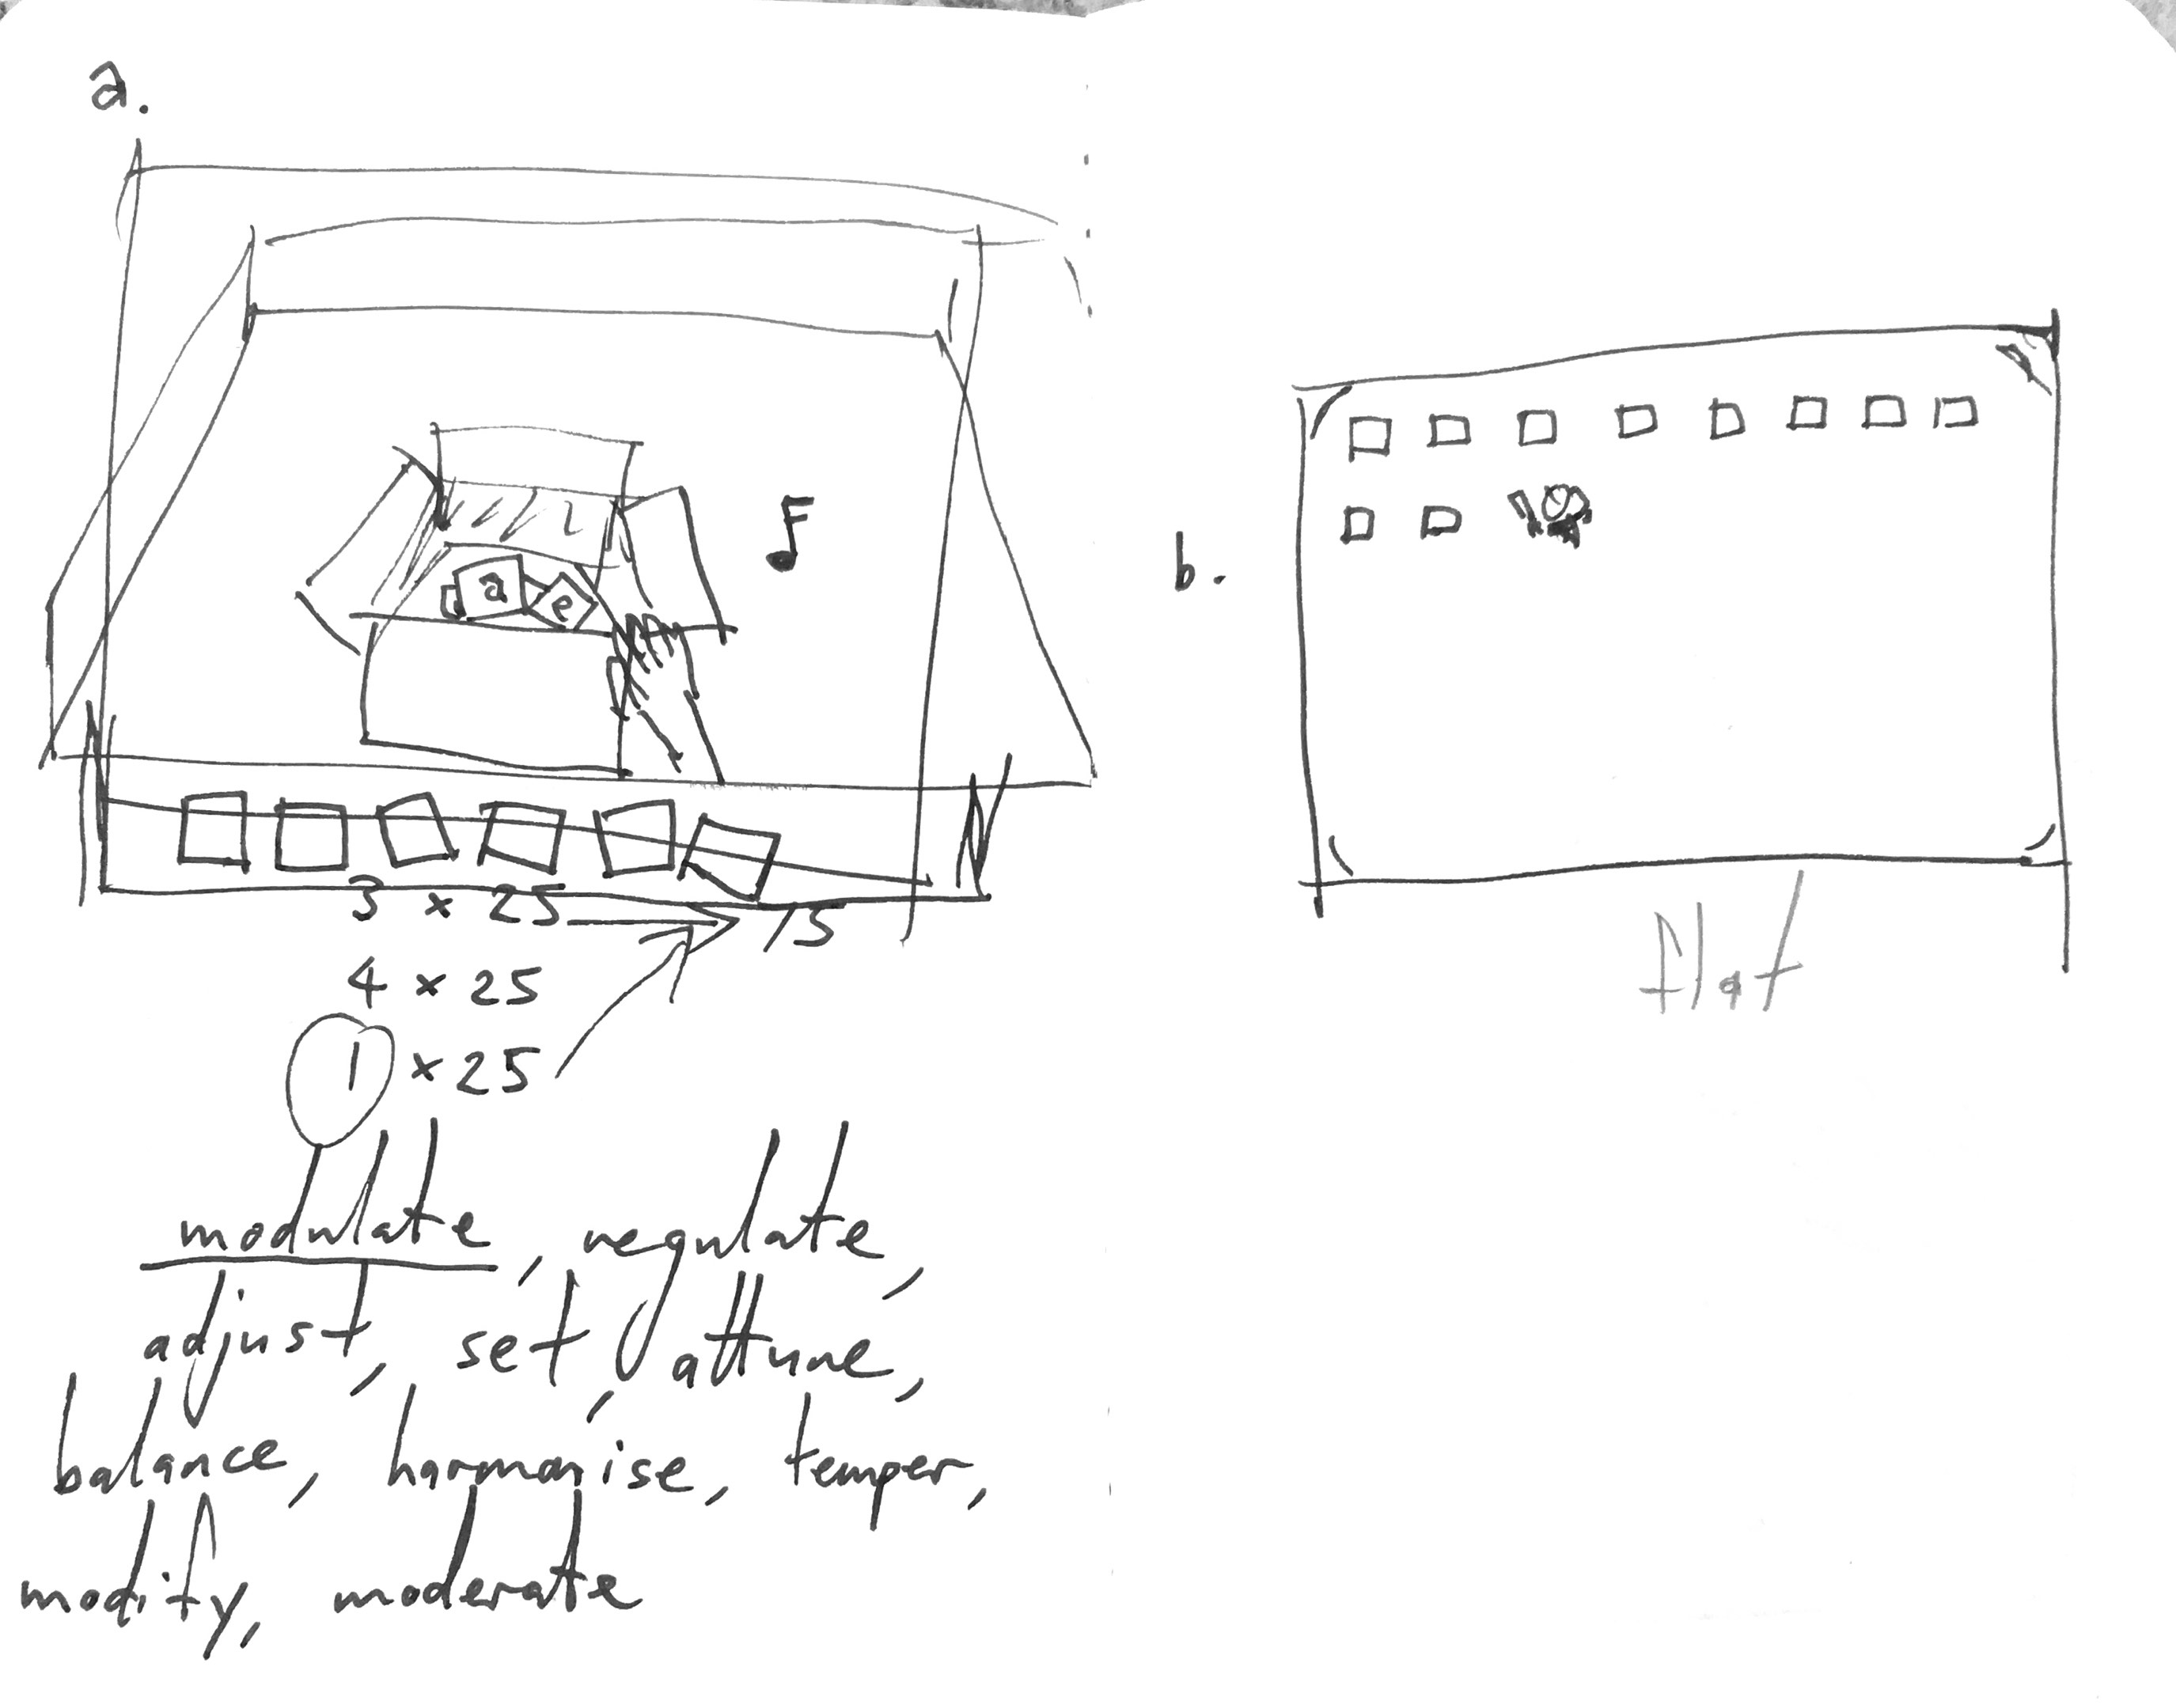 a.
a e
b.
3 × 25 → 75
4 × 25
1 × 25
flat
modulate, regulate,
adjust, set, attune,
balance, harmonise, temper,
modify, moderate